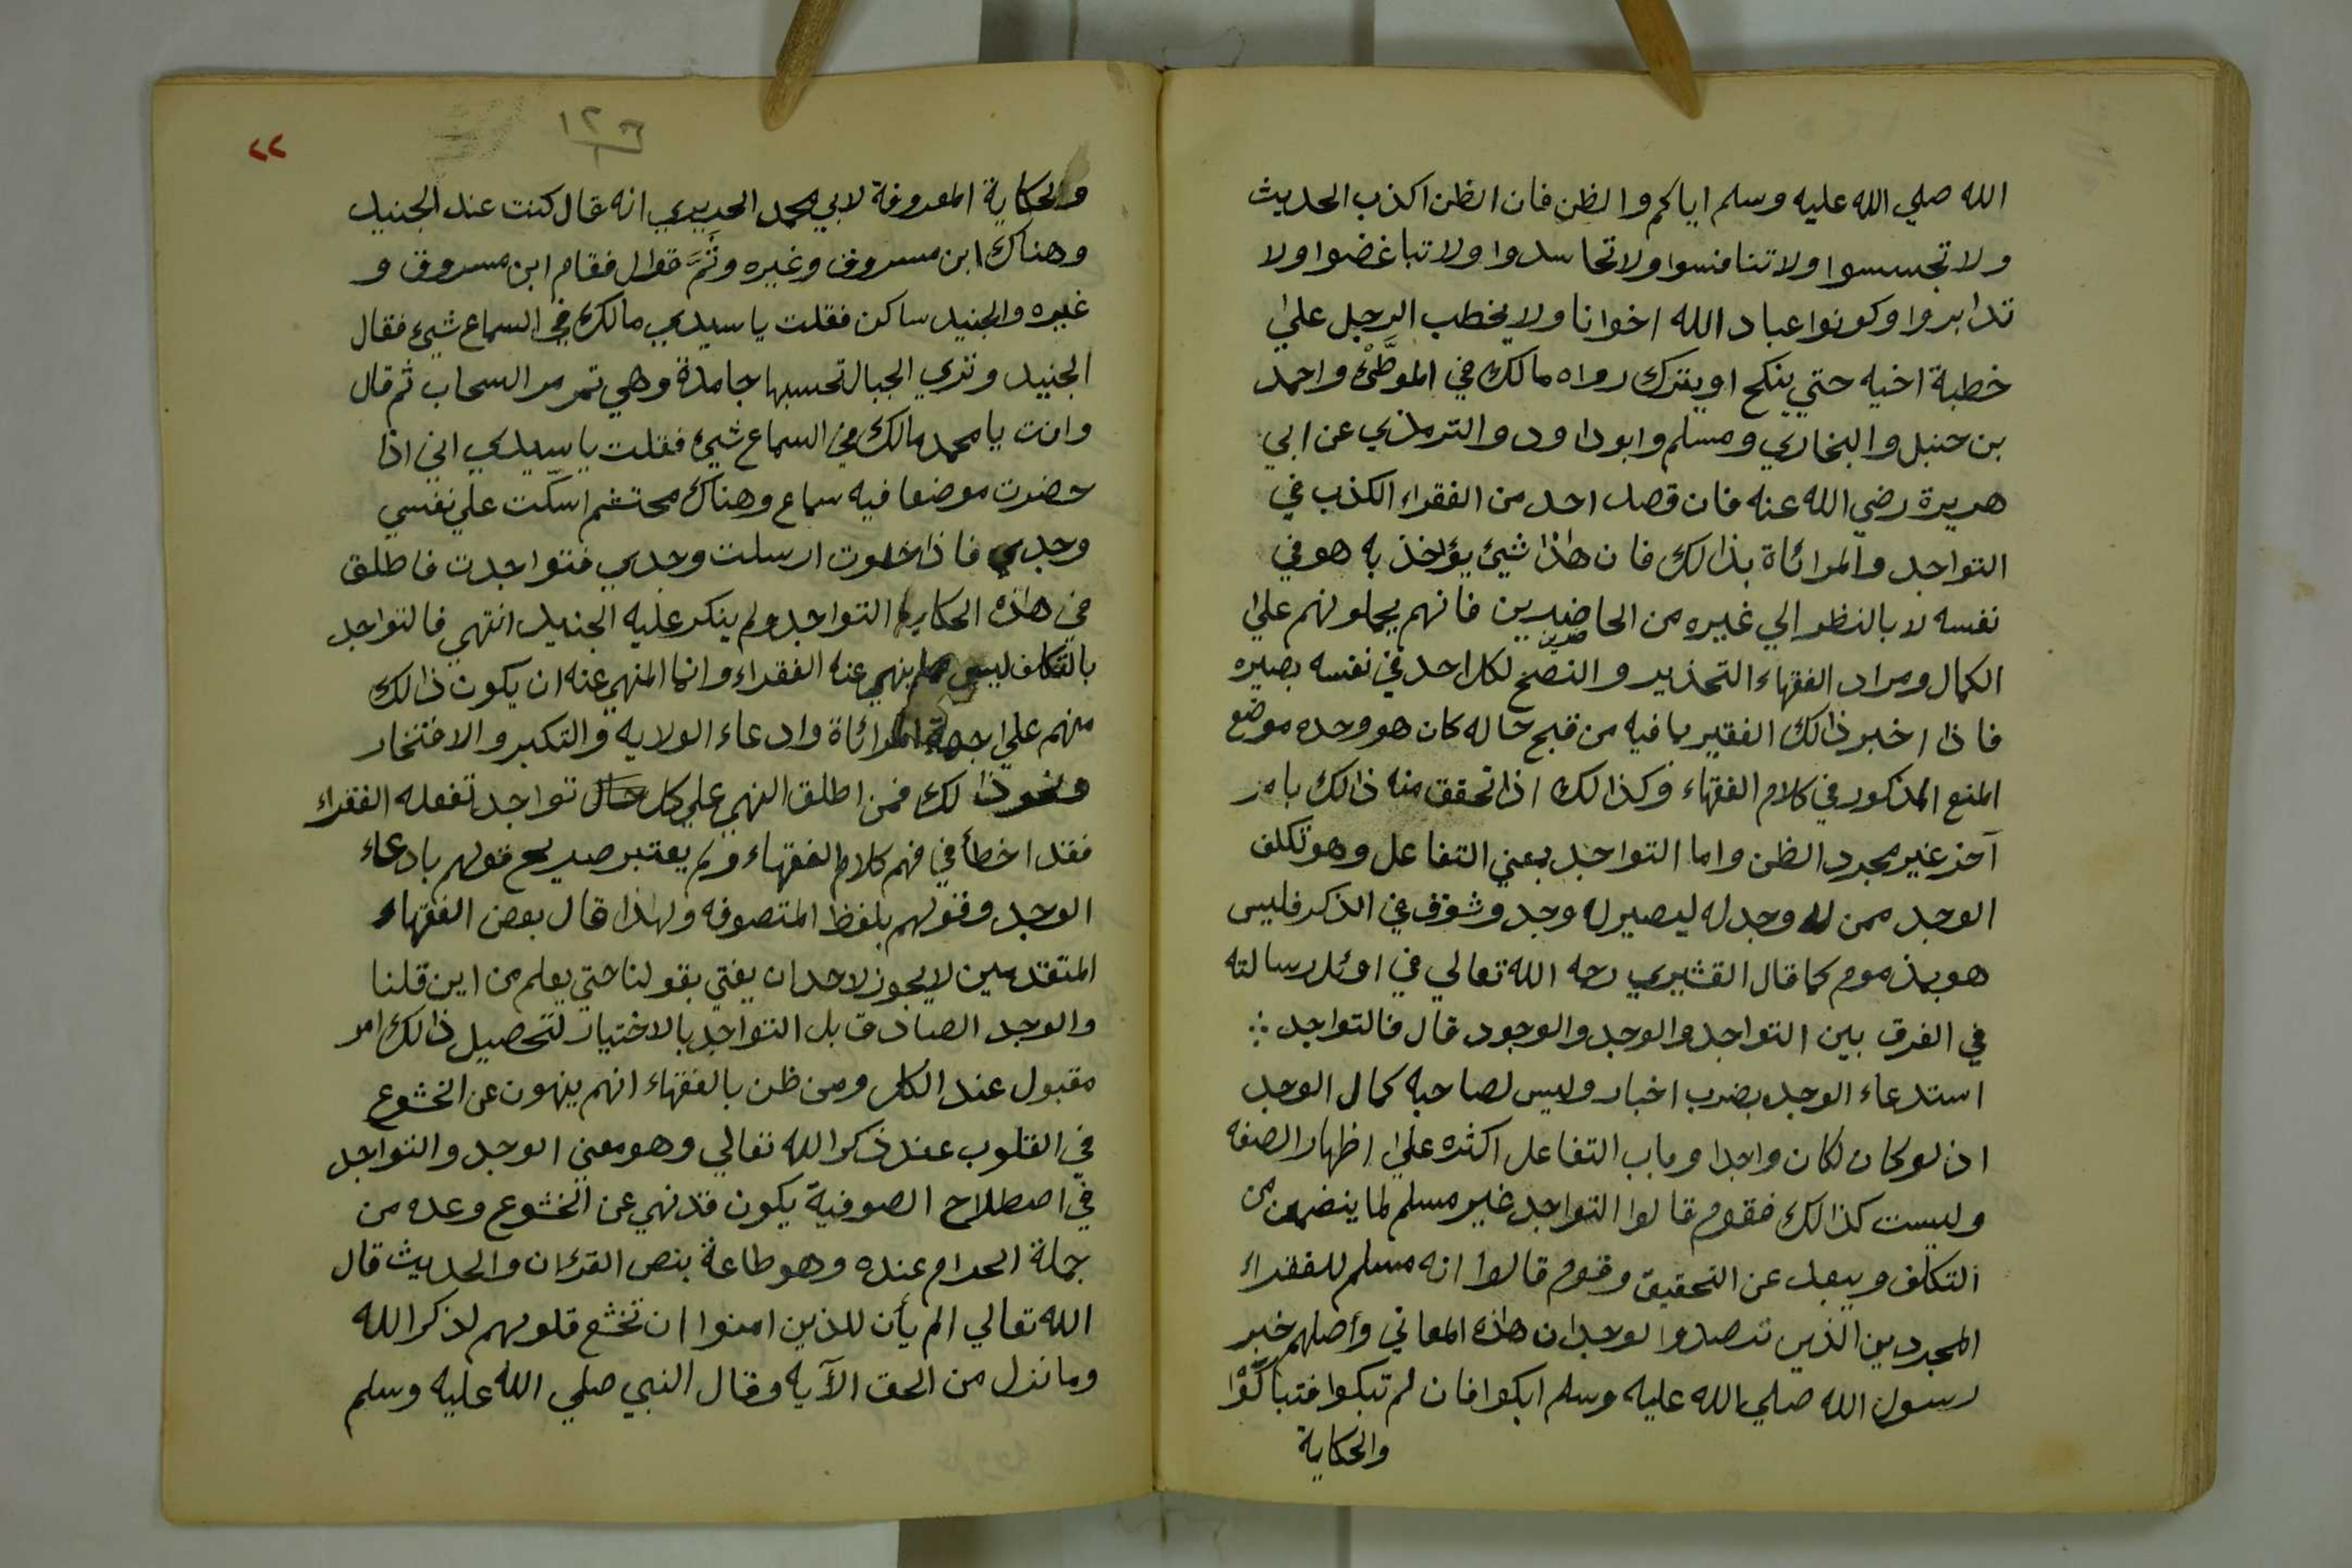 الله صلي الله عليه وسلم اياكم والظن فان الظن اكذب الحديث
ولا تجسسوا ولا تنافسوا ولا تحاسدوا ولا تباغضوا ولا
تدابروا وكونوا عباد الله اخوانا ولا يخطب الرجل علي
خطبة اخيه حتي ينكح او يترك رواه مالك في الموطَّئ واحمد
بن حنبل والبخاري ومسلم وابو داود والترمذي عن ابي
هريرة رضي الله عنه فان قصد احد من الفقراء الكذب في
التواجد والمرائاة بذالك فان هاذا شيئ يؤاخذ به هو في
نفسه لا بالنظر الي غيره من الحاضرين فانهم يحملونهم علي
الكمال ومراد الفقهاء التحذير والنصح لكل احد في نفسه بصيره
فاذا اخبر ذالك الفقير بما فيه من قبح حاله كان هو وحده موضع
المنع المذكور في كلام الفقهاء وكذالك اذا تحقق منه ذالك بامر
آخر غير مجرد الظن واما التواجد بمعني التفاعل وهو تكلف
الوجد ممن لا وجد له ليصير له وجد وشوق في الذكر فليس
هو بمذموم كما قال القشيري رحه الله تعالي في اوئل رسالته
في الفرق بين التواجد والوجد والوجود قال فالتواجد
استدعاء الوجد بضرب اختيار وليس لصاحبه كمال الوجد
اذ لو كان لكان واجدا وباب التفاعل اكثره علي اظهار الصفه
وليست كذالك فقوم قالوا التواجد غير مسلم لما يتضمن من
التكلف ويبعد عن التحقيق وقوم قالوا انه مسلم للفقراء
المجردين الذين ترصدوا لوجدان هاذه المعاني وأصلهم خبر
رسول الله صلي الله عليه وسلم ابكوا فان لم تبكوا فتباكَوْا
والحكاية
١٢٦
٢٢
والحكاية المعروفة لابي محمد الحريري انه قال كنت عند الجنيد
وهناك ابن مسروق وغيره وثَمَّ قوال فقام ابن مسروق و
غيره والجنيد ساكن فقلت يا سيدي مالك في السماع شيئ فقال
الجنيد وتري الجبال تحسبها جامدة وهي تمر مر السحاب ثم قال
وانت يا محمد مالك في السماع شيئ فقلت يا سيدي اني اذا
حضرت موضعا فيه سماع وهناك محتشم امسكت علي نفسي
وجدي فاذا خلوت ارسلت وجدي فتواجدت فاطلق
في هاذه الحكاية التواجد ولم ينكر عليه الجنيد انتهي فالتواجد
بالتكلف ليس مما ينهي عنه الفقراء وانما المنهي عنه ان يكون ذالك
منهم علي جهة المرائاة وادعاء الولايه والتكبر والافتخار
ونحو ذالك فمن اطلق النهي علي كل تواجد تفعله الفقراء
فقد اخطأ في فهم كلام الفقهاء ولم يعتبر صريح قولهم بادعاء
الوجد وقولهم بلفظ المتصوفه ولهاذا قال بعض الفقهاء
المتقدمين لا يجوز لاحد ان يفتي بقولنا حتي يعلم من اين قلنا
والوجد الصادق بل التواجد بالاختيار لتحصيل ذالك امر
مقبول عند الكل ومن ظن بالفقهاء انهم ينهون عن الخشوع
في القلوب عند ذكر الله تعالي وهو معني الوجد والتواجد
في اصطلاح الصوفية يكون قد نهي عن الخشوع وعده من
جملة الحرام عنده وهو طاعة بنص القرءان والحديث قال
الله تعالي الم يأن للذين امنوا ان تخشع قلوبهم لذكر الله
وما نزل من الحق الآيه وقال النبي صلي الله عليه وسلم